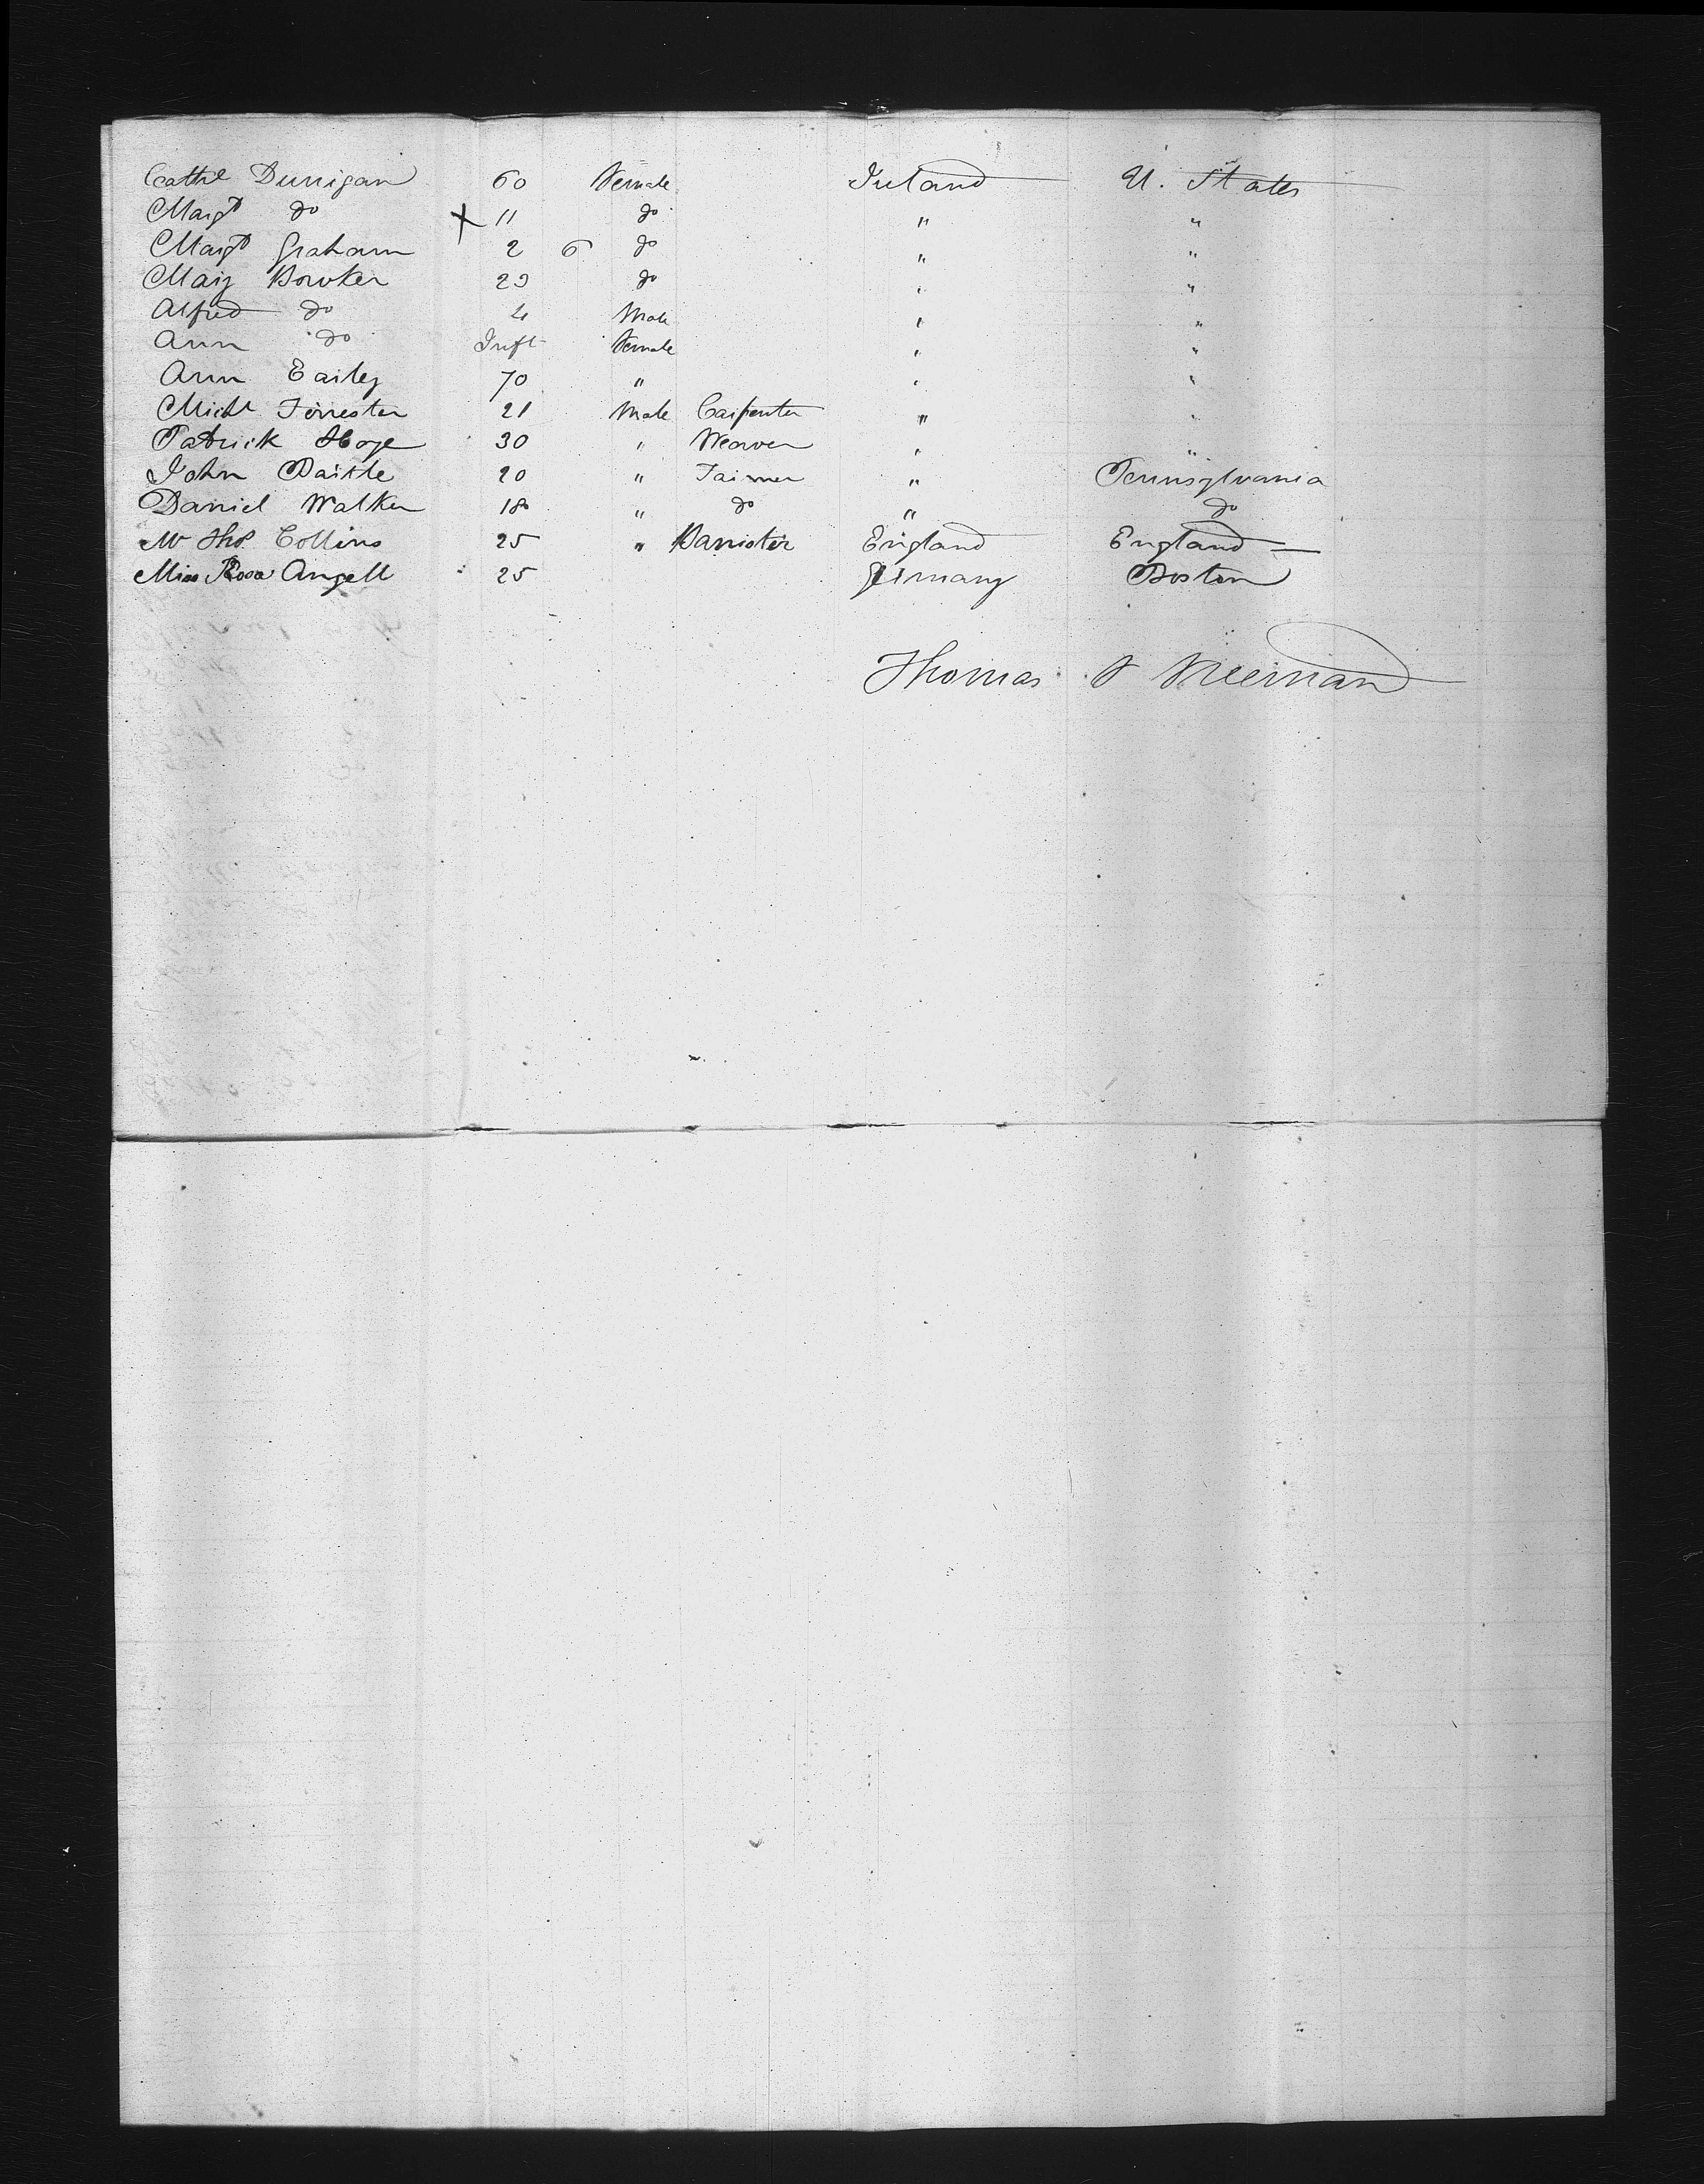 Cathe Dunigan 60 Female Ireland U. States
Margt do X 11 do " "
Margt Graham 2 6 do " "
Mary Bowker 29 do " "
Alfred do 4 Male " "
Ann do Inft Female " "
Ann Earley 70 " " "
Michl Forrester 21 Male Carpenter " "
Patrick Hoye 30 " Weaver " "
John 20 " Farmer " Pennsylvania
Daniel Walker 18 " do " do
Mr Thos Collins 25 " Barrister England England
Miss Rosa Angell 25 Germany Boston
Thomas